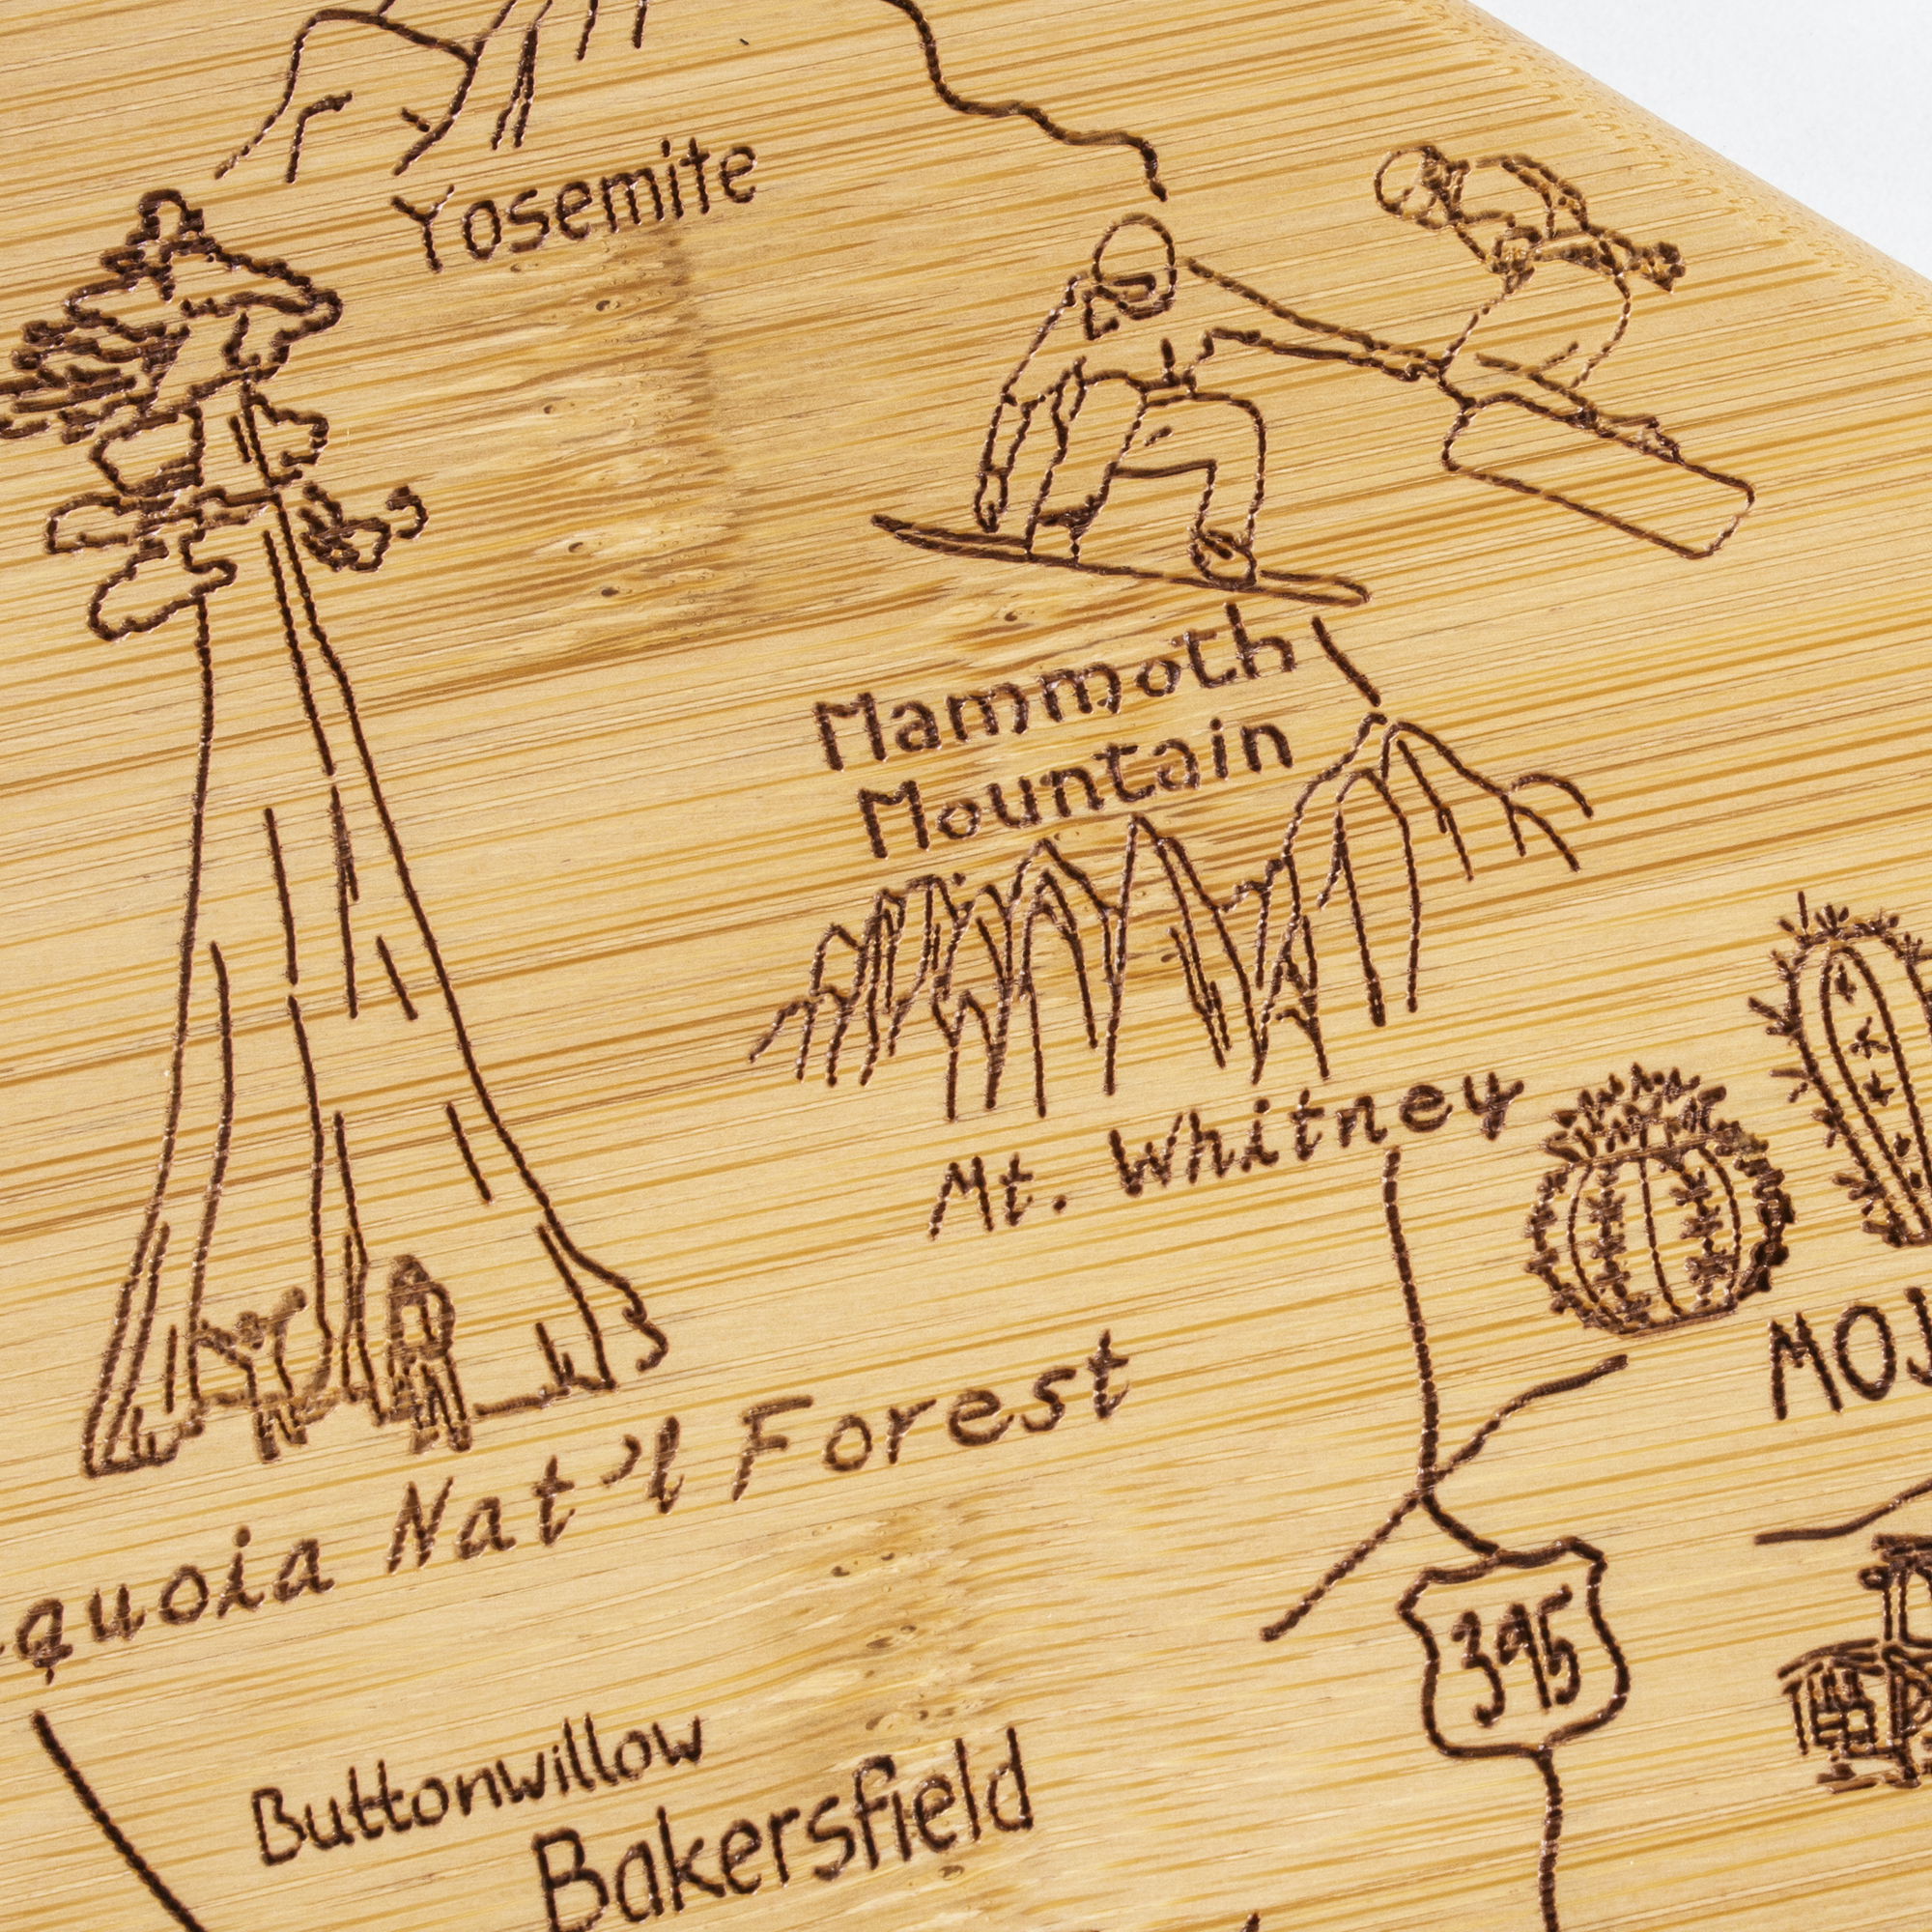 Yosemite
Mammoth
Mountain
Mt. Whitney
MOJ
quoia Nat'l Forest
395
Buttonwillow
Bakersfield